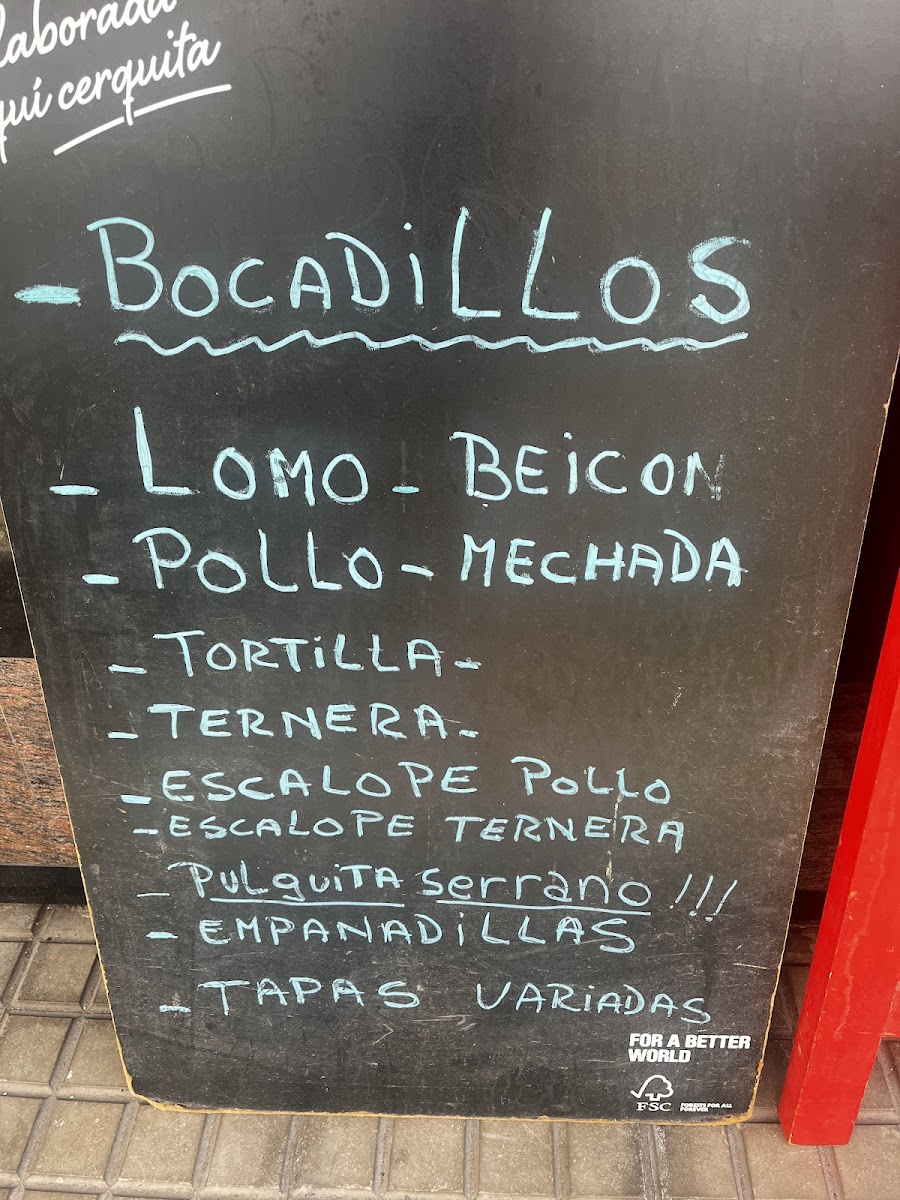 cerquita
- BOCADiLLOS
- LOMO - BEiCON
- POLLO - MECHADA
- TORTiLLA -
- TERNERA -
- ESCALOPE POLLO
- ESCALOPE TERNERA
- PULguiTA serrano !!!
- EMPANADiLLAS
- TAPAS VARiADAS
FOR A BETTER
WORLD
FSC
FORESTS FOR ALL
FOREVER